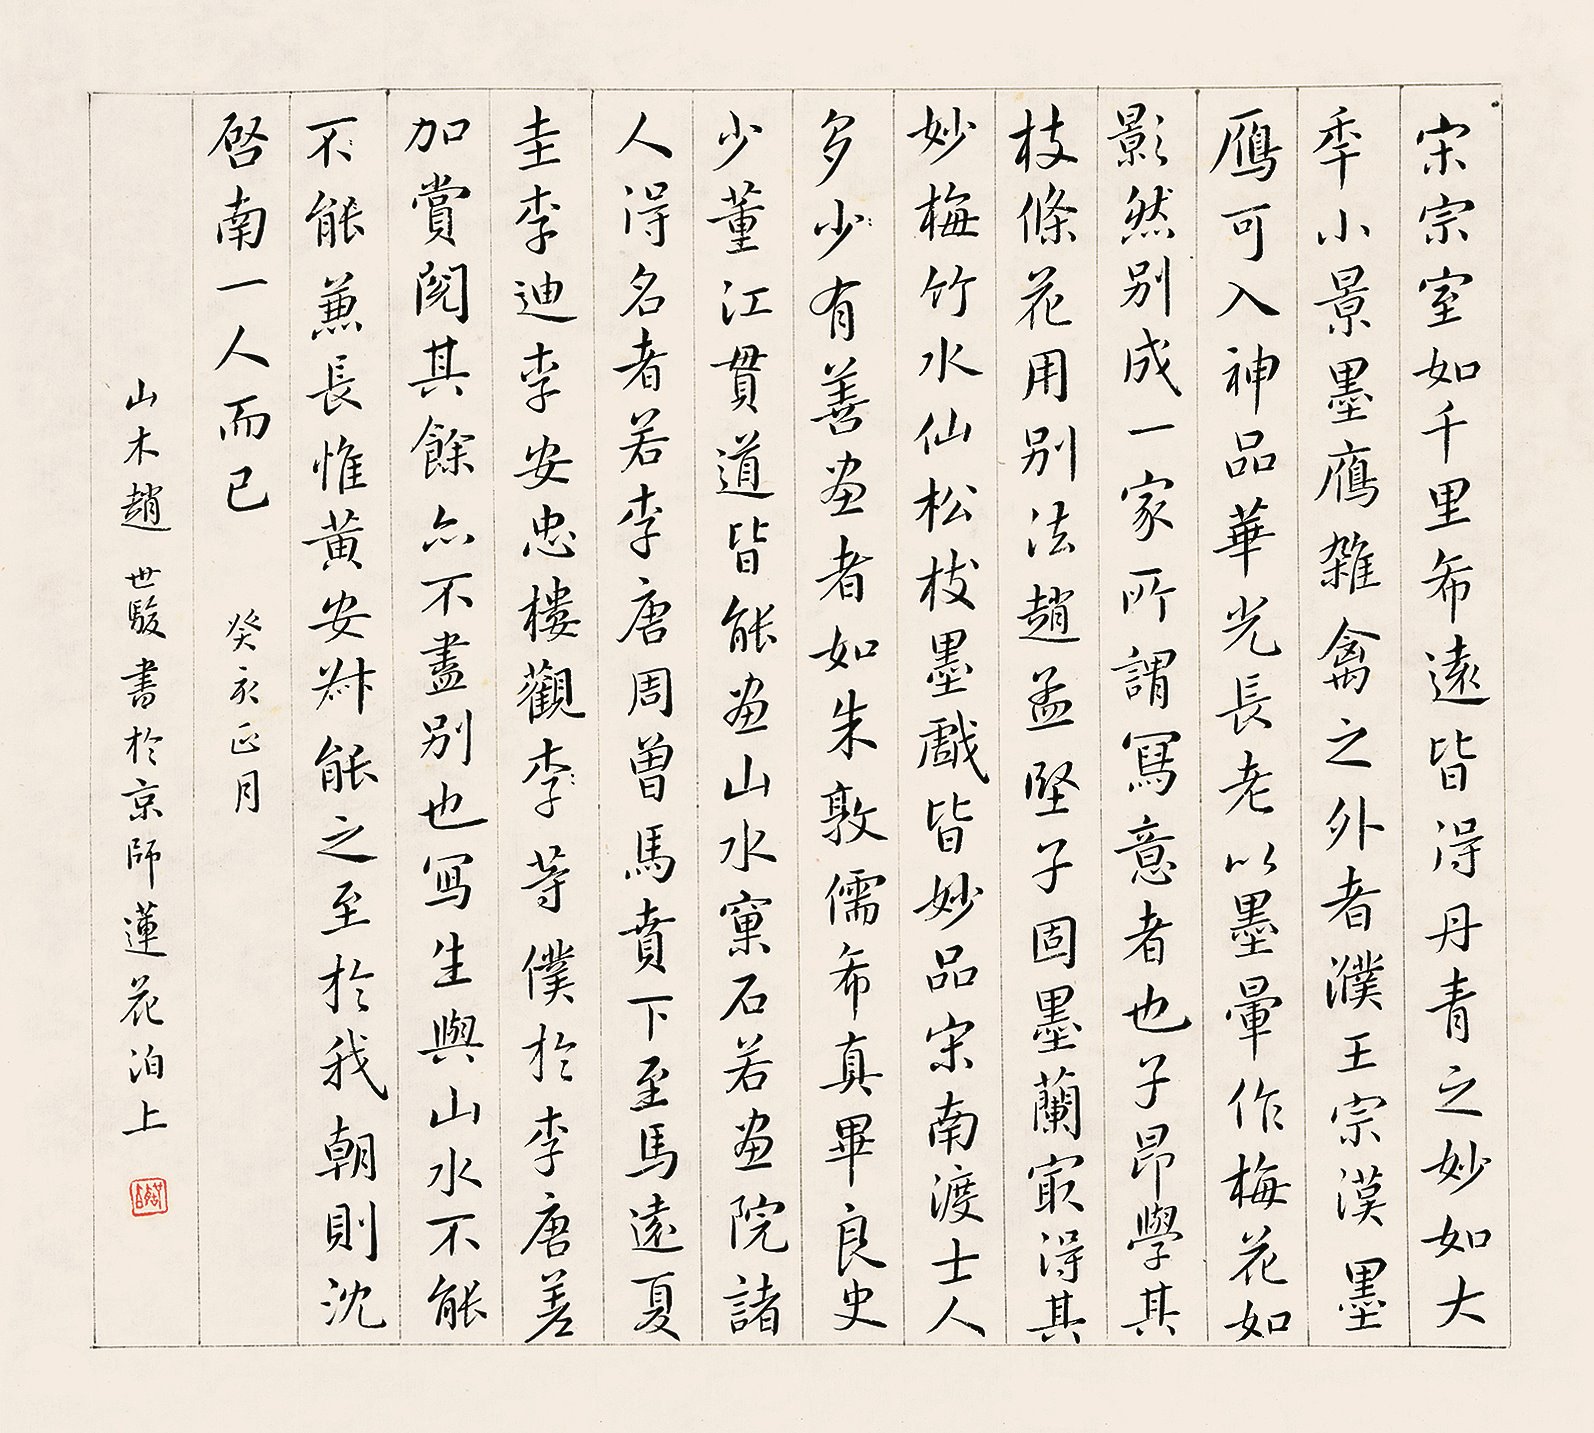 宋宗室如千里希遠皆得丹青之妙如大
年小景墨鴈雜禽之外者濮王宗漢墨
鴈可入神品華光長老以墨暈作梅花如
影然別成一家所謂寫意者也子昂學其
枝條花用別法趙孟堅子固墨蘭㝡得其
妙梅竹水仙松枝墨戲皆妙妙品宋南渡士人
多少有善畫者如朱敦儒希真畢良史
少董江貫道皆能畫山水窠石若畫院諸
人得名者若李唐周曾馬賁下至馬遠夏
圭李迪李安忠樓觀李等僕於李唐差
加賞閱其餘亦不盡別也寫生與山水不能
不能兼長惟黃安叔能之至於我朝則沈
啓南一人而已 癸亥正月
山木趙世駿書於京師蓮花泊上